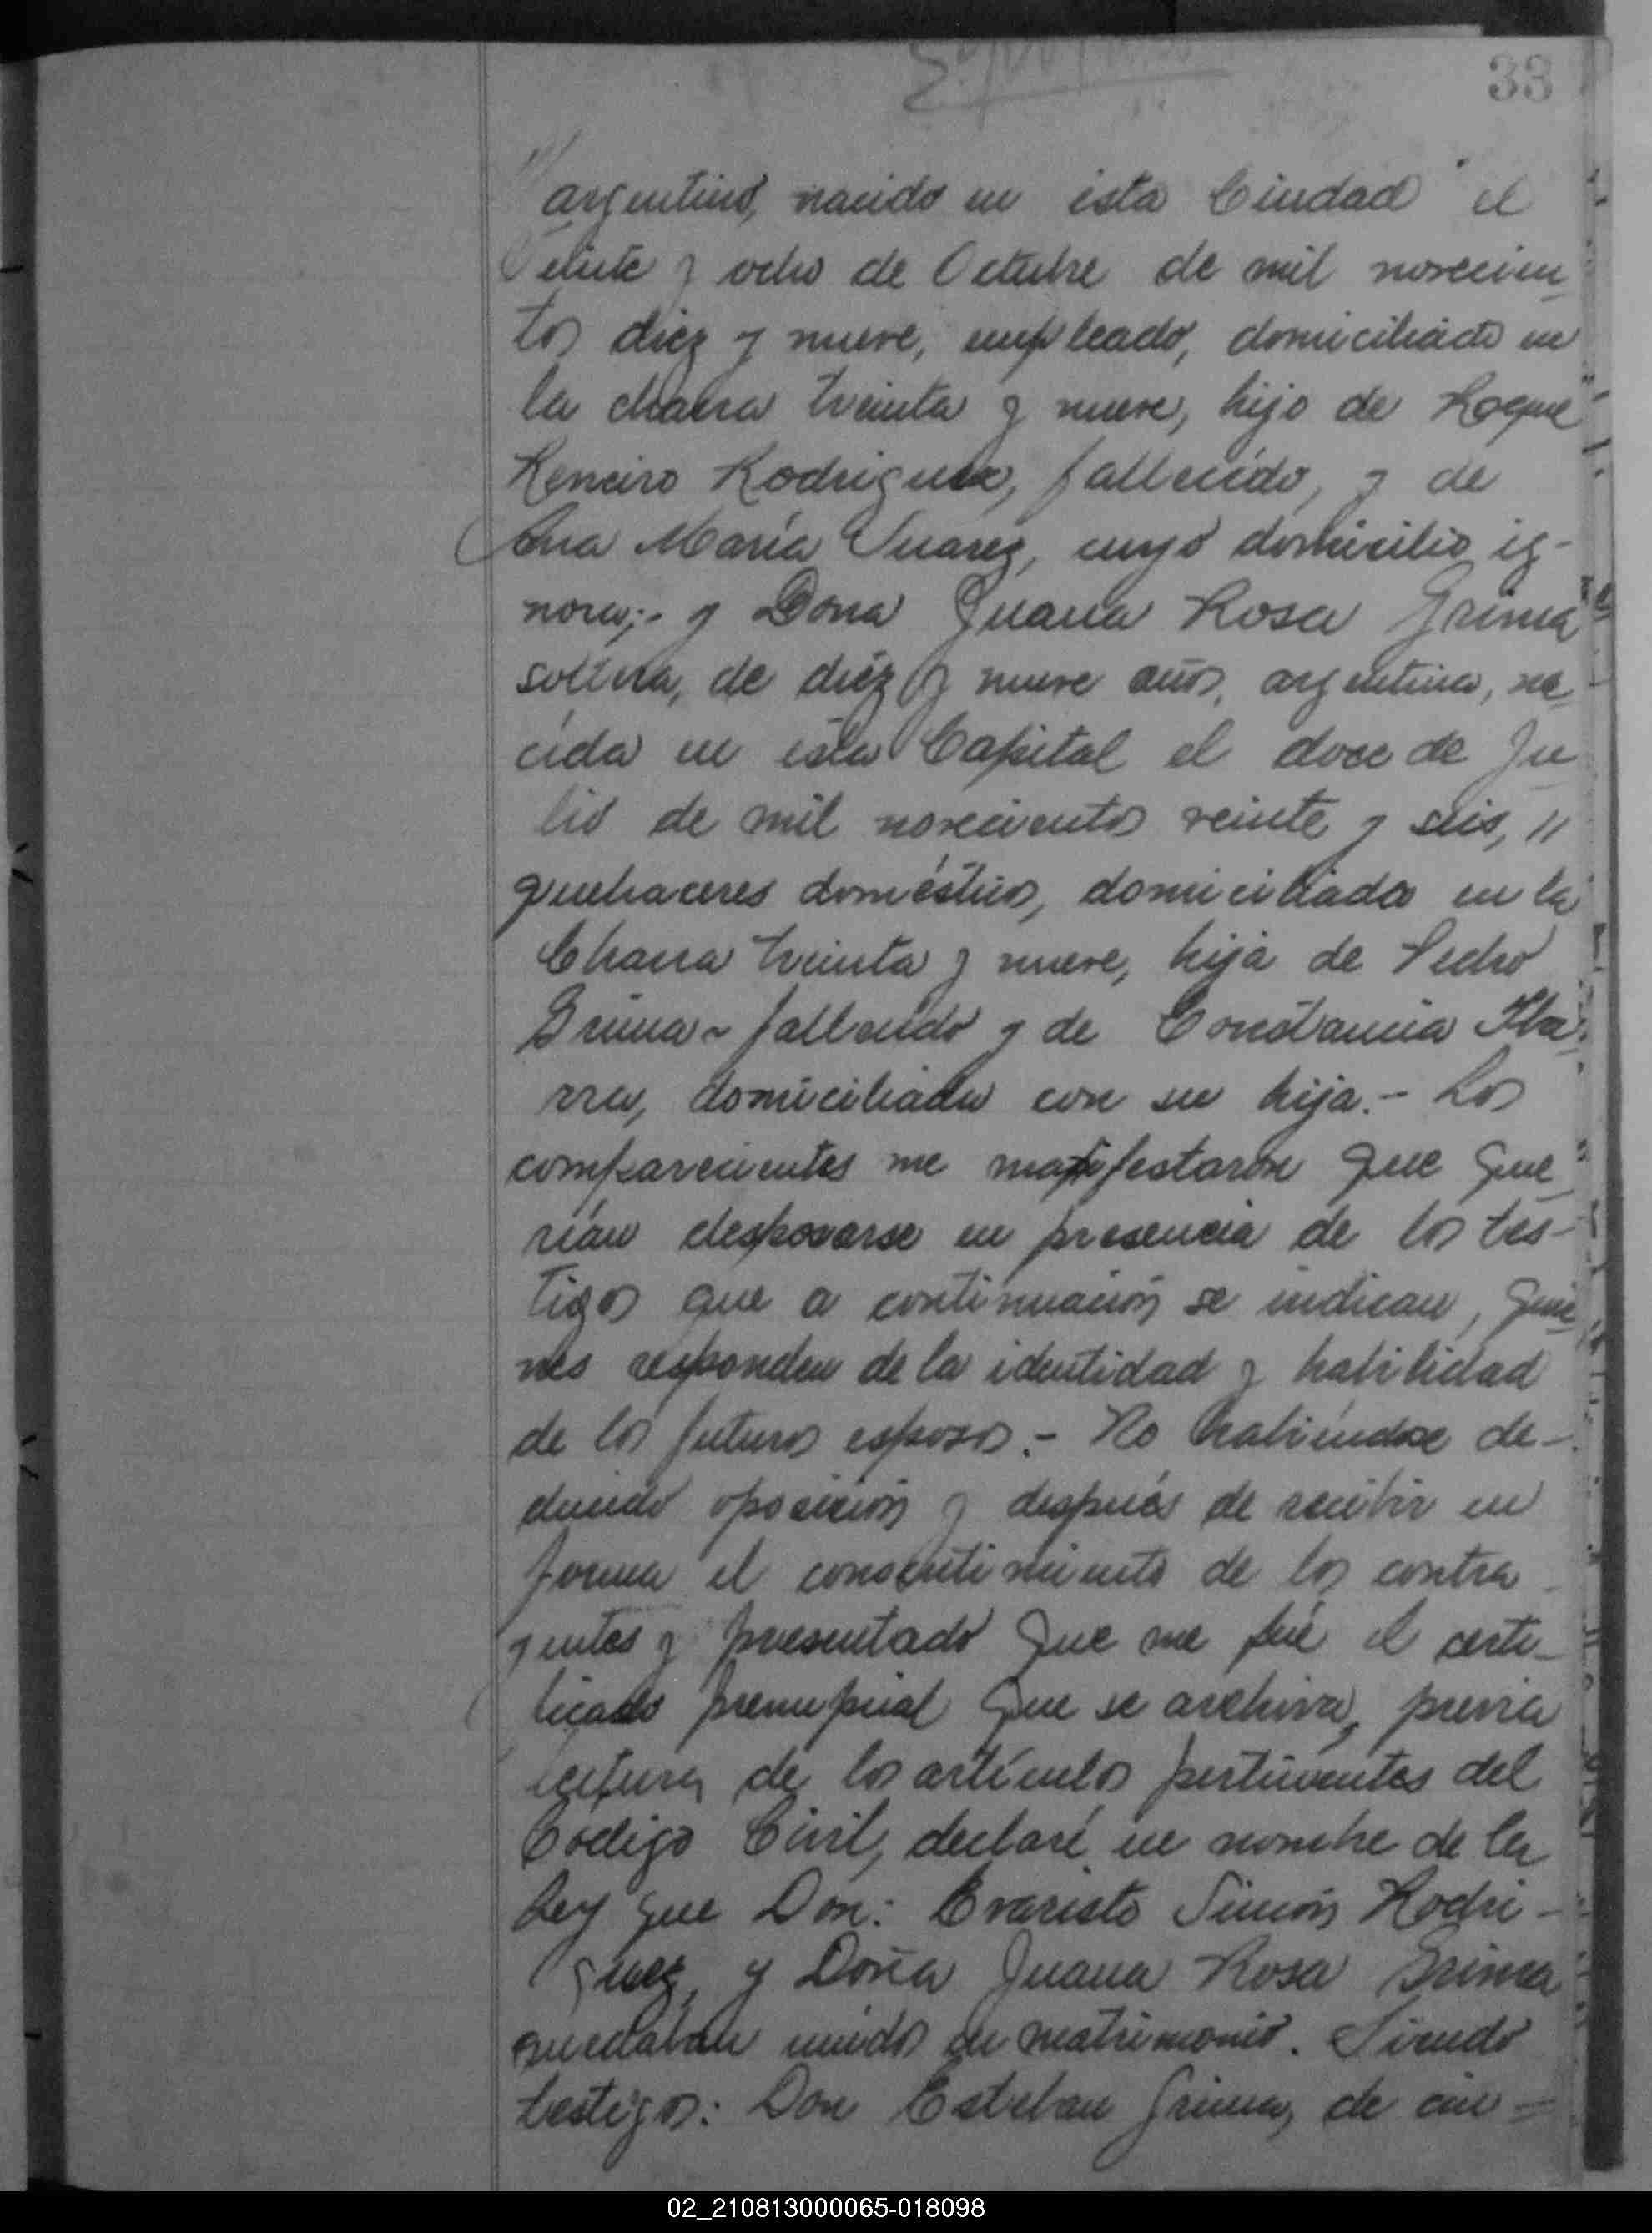 33
argentino, nacido en ésta Ciudad el
Veinte y ocho de Octubre de mil novecien_
tos diez y nueve, empleado, domiciliado en
la chacra treinta y nueve, hijo de Roque
Rodriguez, fallecido, y de
Ana María Suarez, cuyo domicilio ig-
nora;- y Dona Juana Rosa Grima
soltera, de diéz y nueve años, argentina, na_
cida en ésta Capital el doce de Ju_
lio de mil novecientos veinte y seis, //
quehaceres domésticos, domiciliada en la
Chacra treinta y nueve, hija de Pedro
Grima - fallecido y de Constancia Iba_
rra, domiciliada con su hija.- Los
comparecientes me manifestaron que que_
rían desposarse en presencia de los tes-
tigos que a continuación se indican, quie_
nes responden de la identidad y habilidad
de los futuros esposos.- No habiéndose de-
ducido oposición y después de recibir en
forma el consentimiento de los contra_
yentes y presentado que me fué el certi_
ficado prenupcial que se archiva, previa
lectura de los artículos pertinentes del
Codigo Civil, declaré en nombre de la
Ley que Don: Evaristo Simón Rodri-
guez, y Doña Juana Rosa Grima
quedaban unidos en matrimonio. Siendo
testigos: Don Esteban Grima, de cin=
02_210813000065-018098